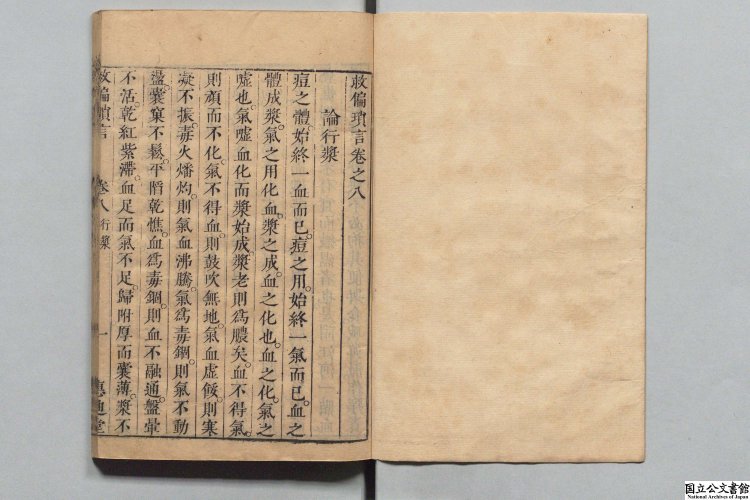 救偏瑣言卷之八
論行漿
痘之體。始終一血而已。痘之用。始終一氣而已。血之
體成漿。氣之用化血。漿之成。血之化也。血之化。氣之
噓也。氣噓血化而漿始成。漿老則爲膿矣。血不得氣。
則頑而不化。氣不得血。則鼓吹無地。氣血虛餒。則寒
凝不振。毒火燔灼。則氣血沸騰。氣爲毒錮。則氣不動
盪。囊窠不鬆。平䧟乾憔。血爲毒錮。則血不融通。盤暈
不活。乾紅紫滯。血足而氣不足。歸附厚而囊薄。漿不
救偏瑣言 卷八 行漿 一 惠迪堂
国立公文書館
National Archives of Japan